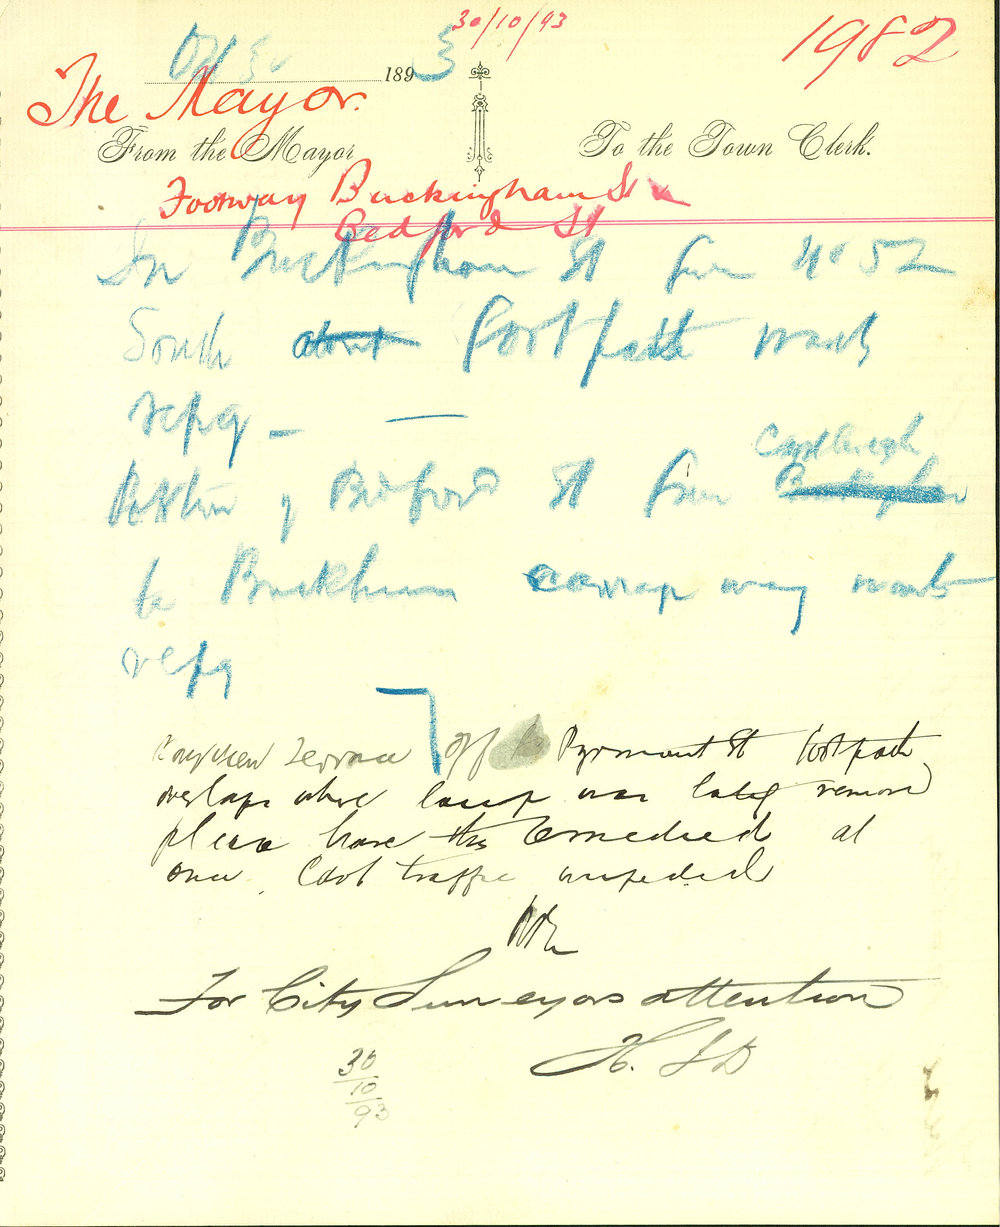 30/10/93
1982
Oct 30 1893
The Mayor.
From the Mayor To the Town Clerk.
Footway Buckingham St &
Bedford St
In Buckingham St from No 52
South about footpath wants
repg —
Castlereagh
Bottom of Bedford St from
to Buckhum carriage way wants
repg
Terrace off Pyrmont St footpath
overlaps where lamp was lately removed
please have this remedied at
once. Cart traffic impeded
For City Surveyors attention
H. J D
30
10
93